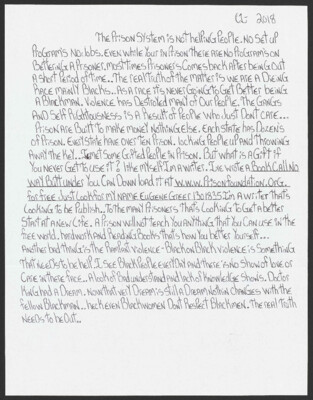 CL 2018
The Prison System is not helping People. No set up
Programs No: Jobs. Even while your in Prison there are no Programs on
Bettering a Prisoner, most times Prisoners Comes back After being out
A short Period of time. The real truth of the matter is we are a Dieing
Race mainly Blacks. As a race it's never Going to Get Better being
A Blackman. Violence has Destroied many of Our People. The Gangs
And Self Righteousness is a result of People who Just Don't Care...
Prison are Built to make money Nothing else. Each State has Dozens
of Prison. Every State have over ten Prison. locking People up and throwing
Away the Key.. I met some Gifted People in Prison. But what is a Gift if
You never Get to use it? like myself I'm a writer. I've wrote a Book Call No
Way But under You Can Down load it at www.Prisonfoundation.Org.
for free Just look for my Name Eugene Greer 1301835. I'm a writer that's
Looking to be Publish.. To the many Prisoners that's Looking to Get a better
Start at a New Life. A Prison will not teach you anything that you can use in the
free world. hard work and reading Books that's how you better yourself...
Another bad thing is the Rampant violence - Black on Black violence is something
That needs to be help. I see Black People everyday and there's no show of love or
Care in these face... A lack of Bad understand and lack of knowledge shows. Doctor
King had a Dream. Now that very Dream is still a Dream Nothin Changes with the
fellow Blackman... heck even Black women Don't Respect Blackmen. The real truth
Needs to be Out..